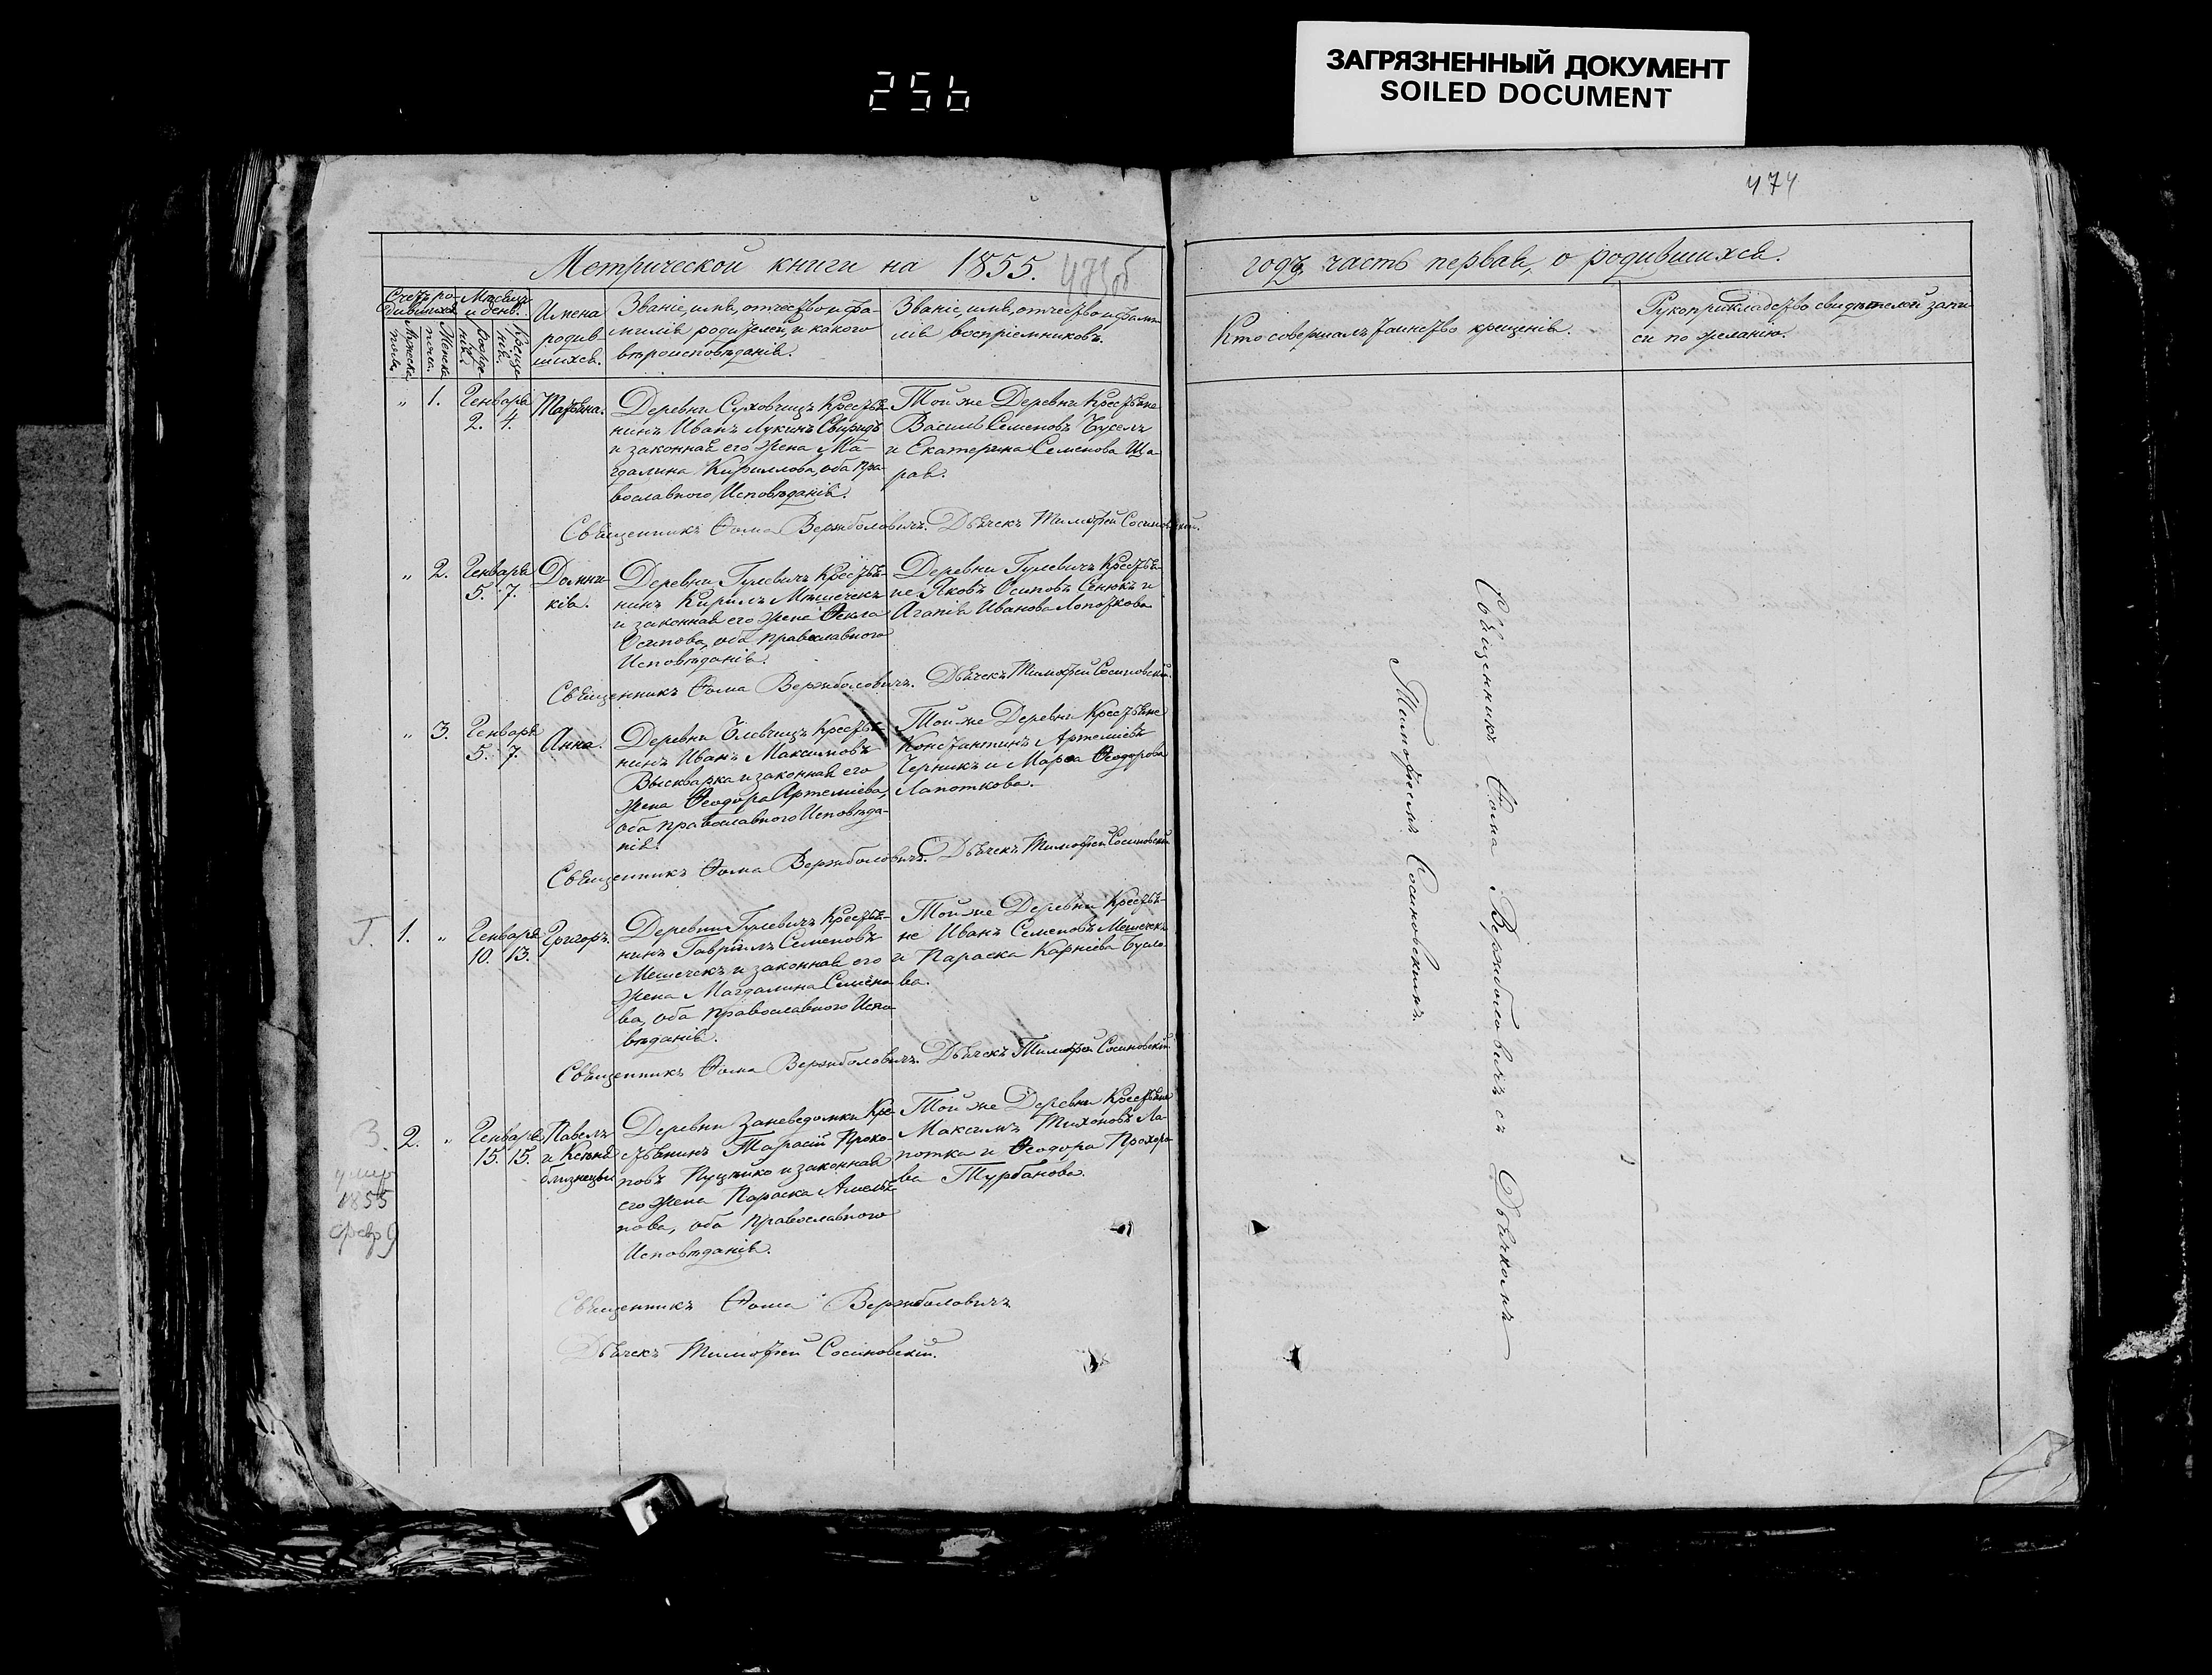 256
ЗАГРЯЗНЕННЫЙ ДОКУМЕНТ
SOILED DOCUMENT
474
Метрической книги на 1855.
473об
годъ часть первая, о родившихся.
Счетъ ро-
дившихся
Мѣсяцъ
и день.
Мужеска
пола.
Женска
пола.
Рожде-
нія.
Креще-
нія.
Имена
родив
шихся.
Званіе, имя, отчество и фа-
милія родителей, и какого
вѣроисповѣданія.
Званіе, имя, отчество и фами
лія воспріемниковъ.
Кто совершалъ таинство крещенія.
Рукоприкладство свидѣтелей запи-
си по желанію.
" 1. Генваря
2. 4.
Татьяна.
Деревни Суховчицъ Крестья-
нинъ Иванъ Лукинъ Свиридъ
и законная его жена Ма-
гдалина Кириллова, оба пра-
вославного Исповѣданія.
Той же Деревни Крестьяне
Василь Семеновъ Буселъ
и Екатерина Семенова Ща-
рая.
Священникъ Ѳома Вержболовичъ. Дьячекъ Тимоѳей Сосиновскій.
" 2. Генваря
5. 7.
Домни-
кія.
Деревни Гулевичъ Крестья-
нинъ Кирилъ Мѣшечекъ
и законная его жена Ѳекла
Осипова, оба православного
Исповѣданія.
Деревни Гулевичъ Крестья-
не Яковъ Осиповъ Сенюкъ и
Агапія Иванова Лопоткова
Священникъ Ѳома Вержболовичъ. Дьячекъ Тимоѳей Сосиновскій.
" 3. Генваря
5. 7.
Анна.
Деревни Олевчицъ Крестья-
нинъ Иванъ Максимовъ
Выскварка и законная его
жена Ѳеодора Артемиева,
оба православного Исповѣда-
нія.
Той же Деревни Крестьяне
Константинъ Артемиевъ
Черникъ и Марѳа Ѳеодорова
Лапоткова.
Священникъ Ѳома Вержболовичъ. Дьячекъ Тимоѳей Сосиновскій
1. " Генваря
10. 13.
Григоръ.
Деревни Гулевичъ Крестья-
нинъ Гавріилъ Семеновъ
Мешечекъ и законная его
жена Магдалина Семено
ва, оба православного Испо
вѣданія.
Той же Деревни Крестья-
не Иванъ Семеновъ Мешечекъ
и Параска Карніева Бусло
ва.
Священникъ Ѳома Вержболовичъ. Дьячекъ Тимоѳей Сосиновскій.
3.
умер
1855
февр 9
2. " Генваря
15. 15.
Павелъ
и Ксенія
близнецы
Деревни Заневедомки Кре-
стьянинъ Тарасій Проко-
повъ Пуцейко и законная
его жена Параска Амелья
нова, оба православного
Исповѣданія.
Той же Деревни Крестьяне
Максимъ Тихоновъ Ла-
потка и Ѳеодора Прохоро
ва Турбанова.
Священникъ Ѳома Вержболовичъ
Дьячекъ Тимоѳей Сосиновскій.
Священникъ Ѳома Вержболовичъ съ Дьячкомъ
Тимоѳеемъ Сосиновскимъ.